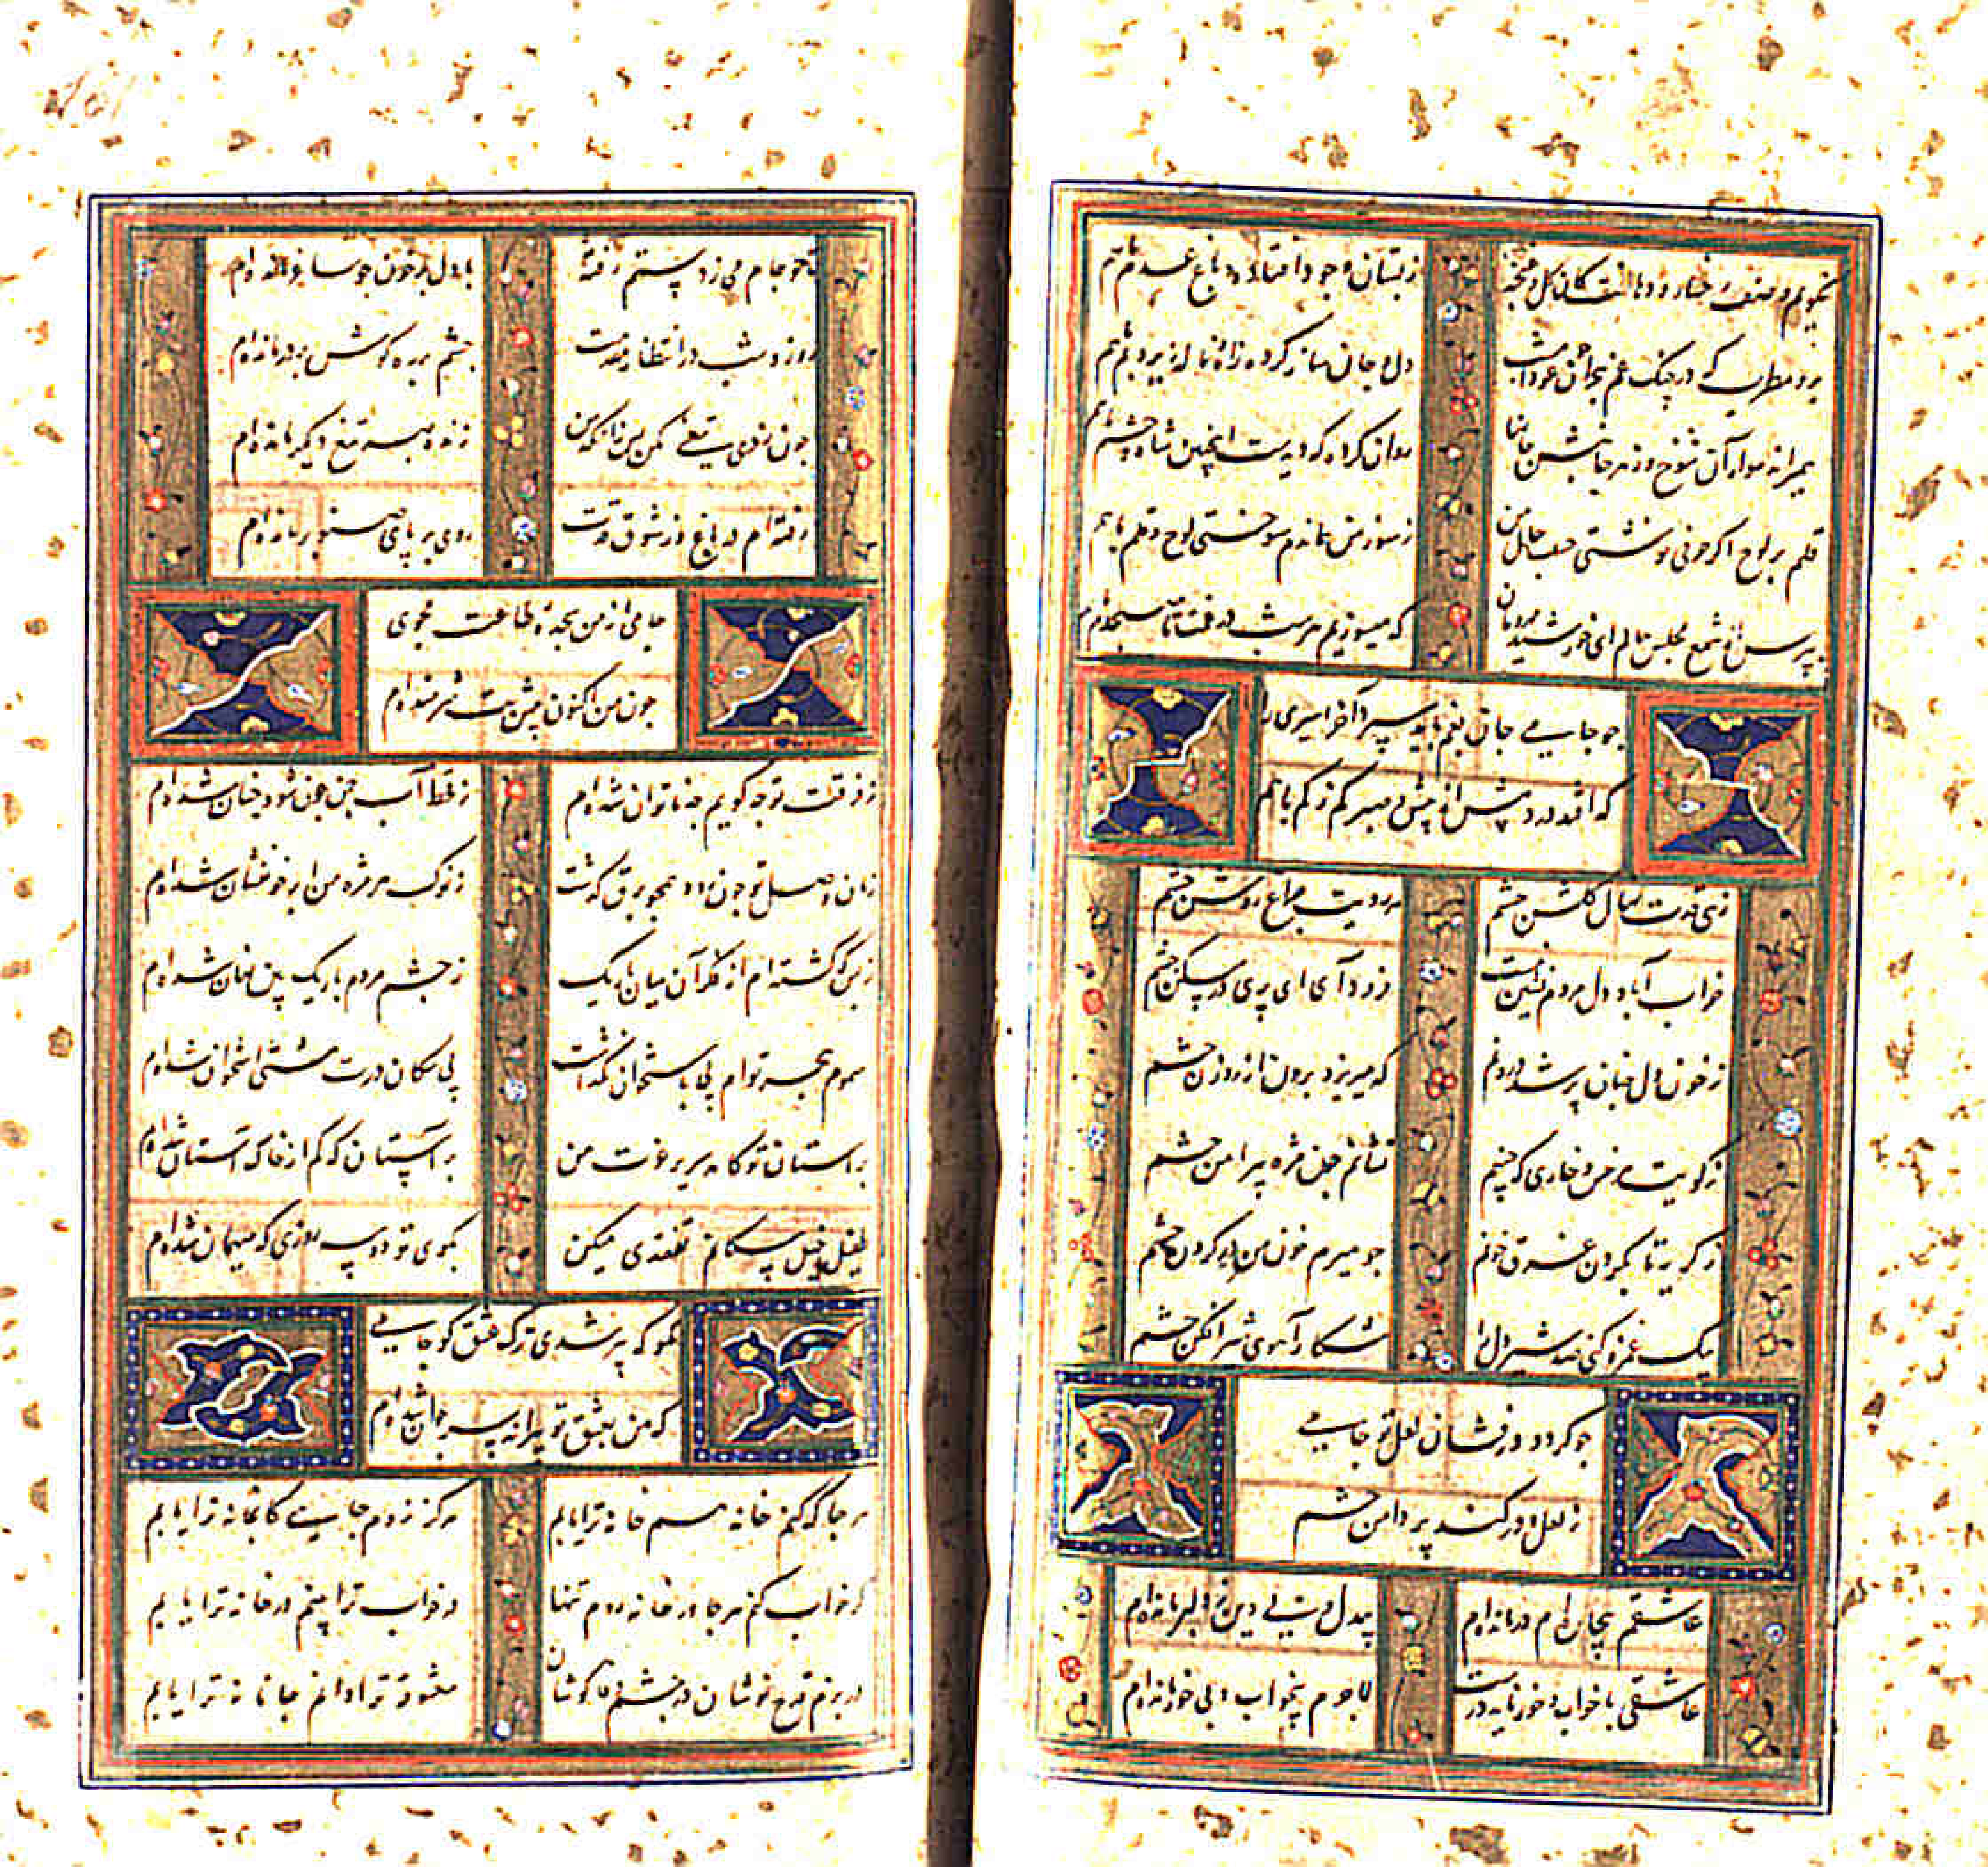 نگویم وصف رخسار و دهانت کان گل و غنچه
ز بستان وجود افتاده در باغ عدم با هم
برد مطرب که در چنگ غم هجران عودآسا
دل و جان ساز کرده ناله از زیر و بم با هم
روان کرده که دیدست اینچنین شاه و حشم با هم
قلم بر لوح اگر حرفی نوشتی حسب حال من
ز سوز من قلم هم سوختی لوح و قلم با هم
بپرس از شمع مجلس حالم ای خورشید مه رویان
که میسوزیم هر شب در غمت تا صبحدم با هم
چو جامی جان بغم باید سپرد آخر اسیری را
که افتد درد بیش از بیش و صبر کم ز کم با هم
زهی قدت نهال گلشن چشم
مه رویت چراغ روشن چشم
خراب آباد دل مردم نشین نیست
فرود آی ای پری در مسکن چشم
ز خون دل چنان پر شد درونم
که میریزد برون از روزن چشم
ز کویت هر خس و خاری که چینم
نشانم چون مژه پیرامن چشم
ز گریه تا بگردن غرق خونم
چو میرم خون من در گردن چشم
بیک غمزه کنی صد شیر دل را
شکار آهوی شیر افکن چشم
چو گردد درفشان لعل تو جامی
ز لعل و در کند پر دامن چشم
عاشقم بیچاره‌ام درمانده‌ام
بیدل و بی دین ز دلبر مانده‌ام
عاشقی با خواب و خور ناید درست
لاجرم بیخواب و بی خور مانده‌ام
تا چو جام می ز دستم رفته
با دل پر خون چو ساغر مانده‌ام
روز و شب در انتظار مقدمت
چشم بر ره گوش بر در مانده‌ام
چون زدی تیغی مکن بس زانکه من
زنده بهر تیغ دیگر مانده‌ام
رفته‌ام در باغ و ز شوق قدت
روی بر پای صنوبر مانده‌ام
جامی از من سجده طاعت مجوی
چون من اکنون پیش بت سر مانده‌ام
ز فرقت تو چه گویم چه ناتوان شده‌ام
ز قحط آب چمن چون شود چنان شده‌ام
زمان وصل تو چون بود همچو برق گذشت
ز نوک هر مژه من ابر خونفشان شده‌ام
ز بس که گشته‌ام از فکر آن میان باریک
ز چشم مردم باریک بین نهان شده‌ام
سموم هجر توام پی باستخوان نگذاشت
پی سگان درت مشتی استخوان شده‌ام
بر آستان تو گاهی سریر عزت من
بر آستان که کم از خاک آستان شده‌ام
طفیل خیل سگانم تفقدی میکن
بکوی تو دو سه روزی که میهمان شده‌ام
مگو که پیر شدی ترک عشق گو جامی
که من بعشق تو پیرانه سر جوان شده‌ام
هر جا که کنم خانه هم خانه ترا یابم
هرگز نروم جایی کانجا نه ترا یابم
گر خواب کنم هر جا در خانه روم تنها
در خواب ترا بینم در خانه ترا یابم
در بزم قدح نوشان
معشوقه ترا دانم جانانه ترا یابم